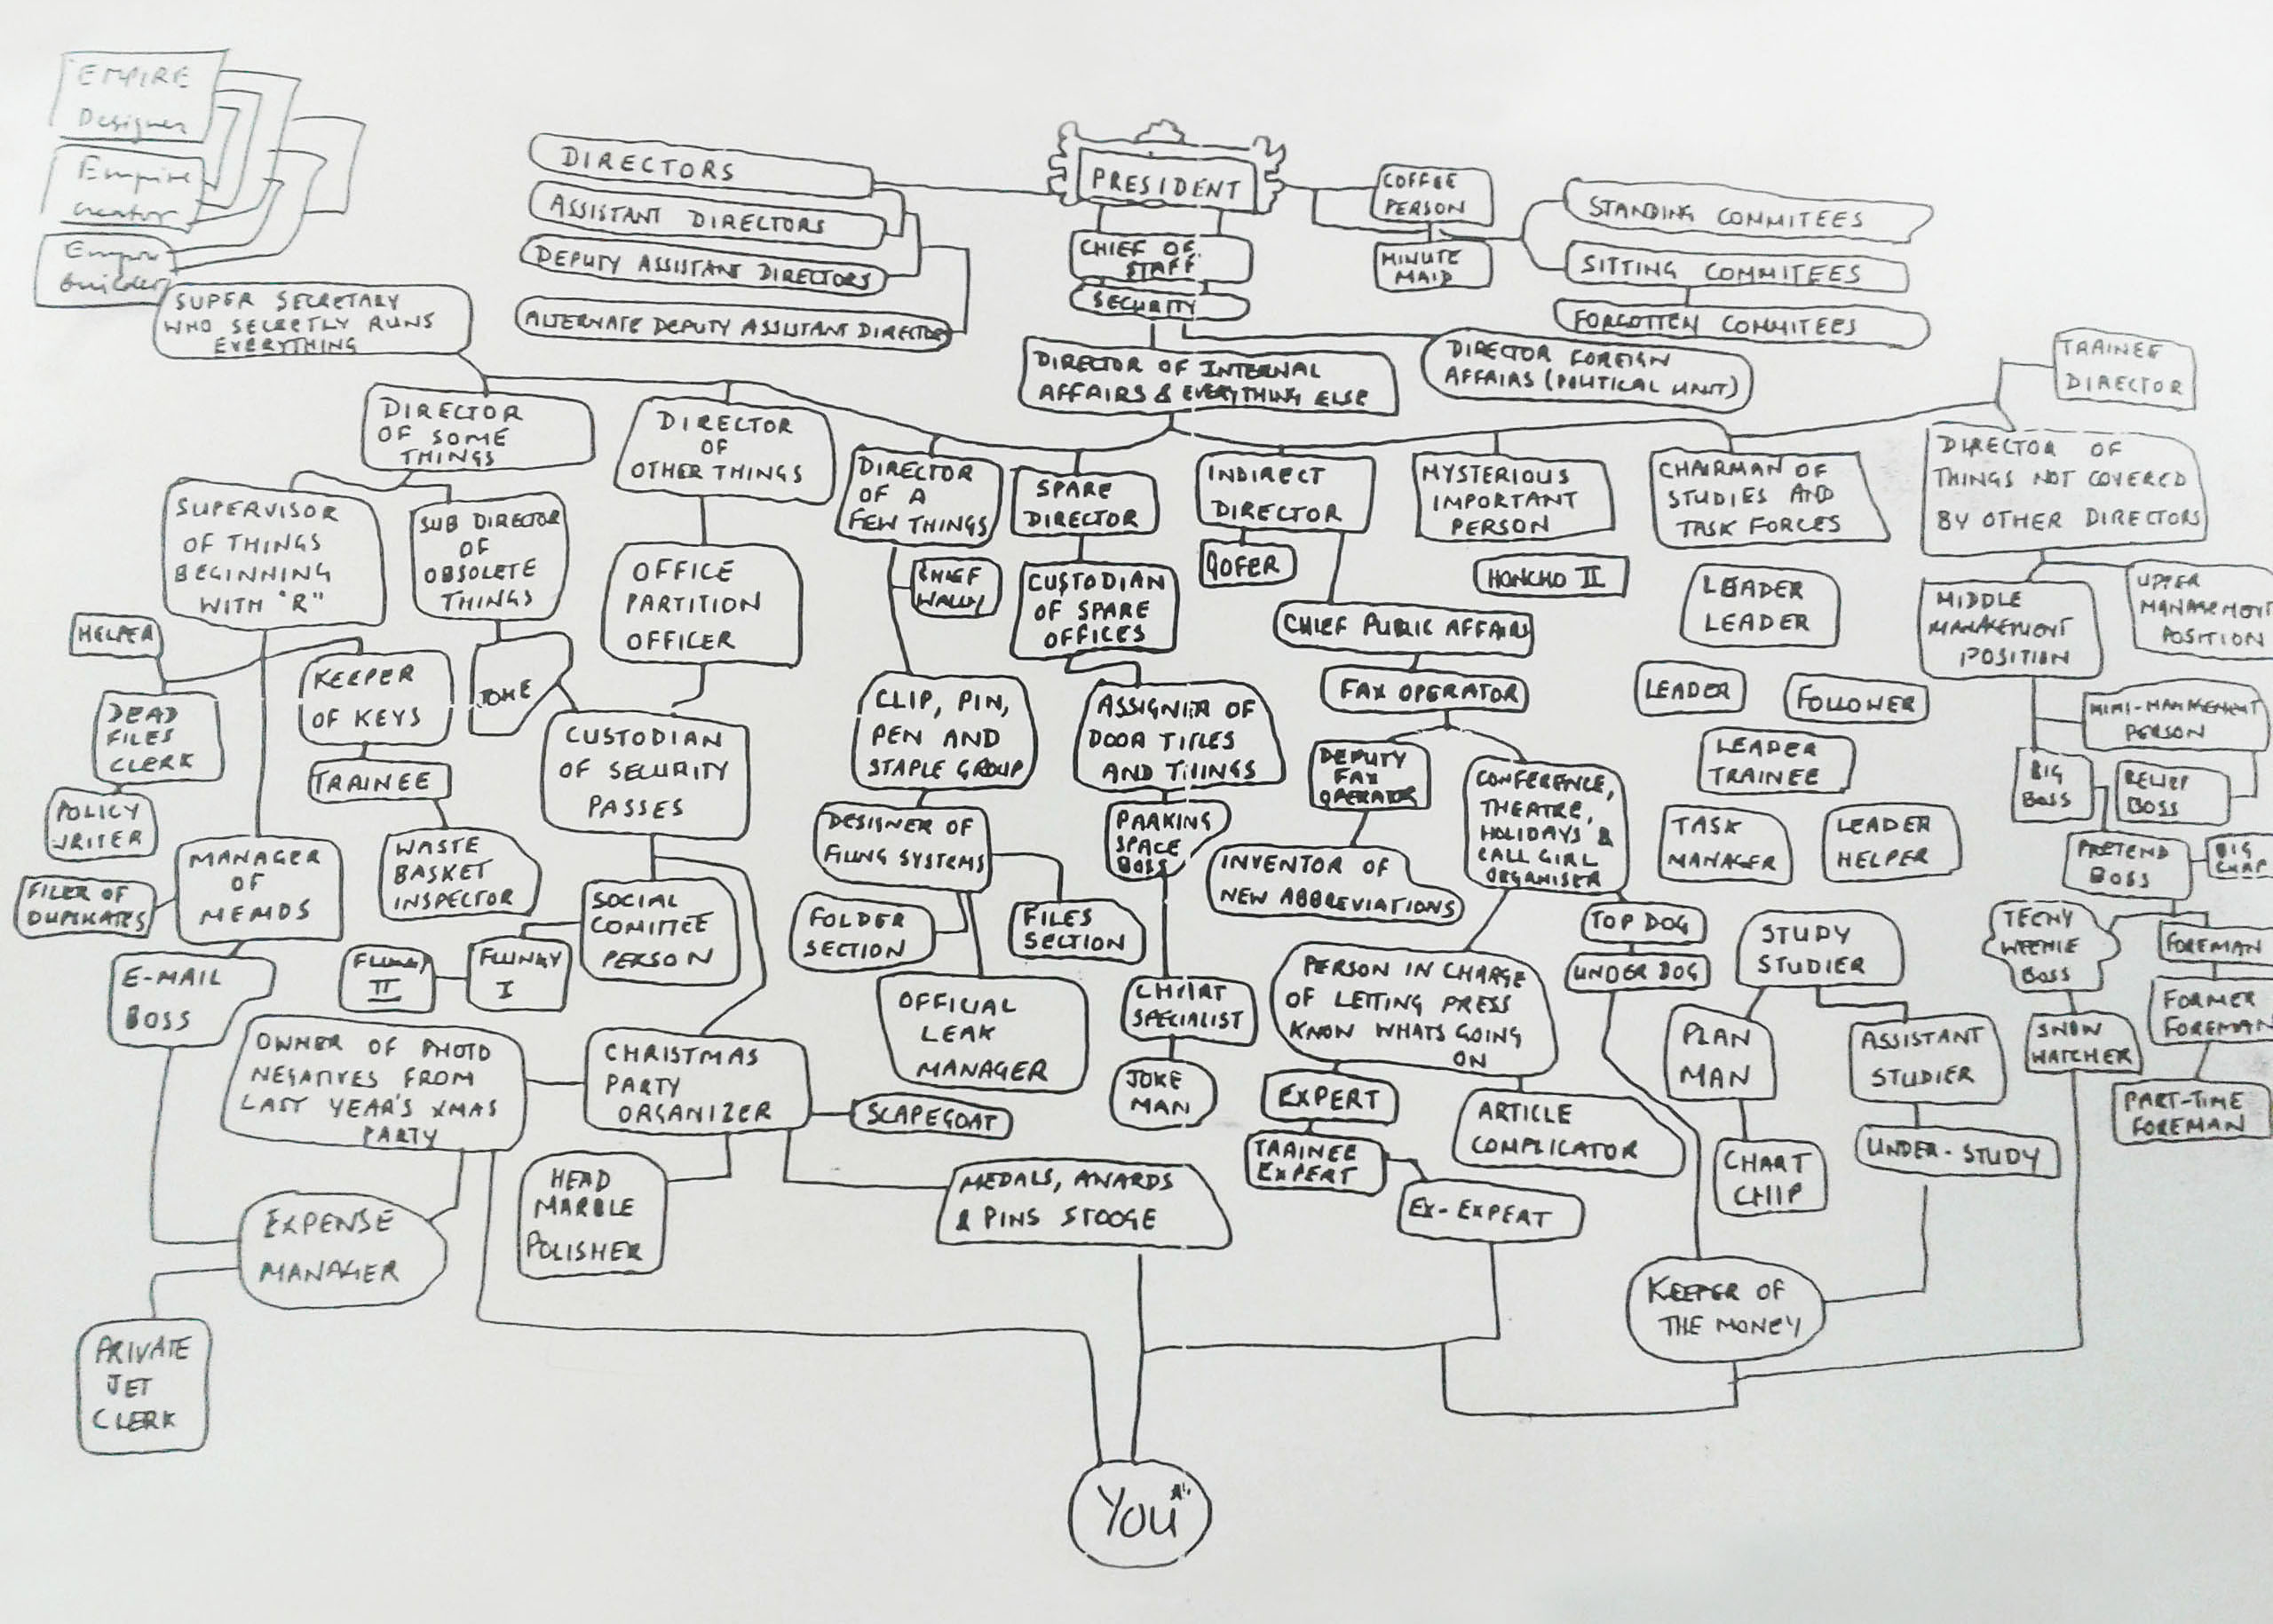 EMPIRE
Designer
Empire
creator
Empire
builder
DIRECTORS
ASSISTANT DIRECTORS
DEPUTY ASSISTANT DIRECTORS
ALTERNATE DEPUTY ASSISTANT DIRECTOR
PRESIDENT
CHIEF OF
STAFF
SECURITY
COFFEE
PERSON
MINUTE
MAID
STANDING COMMITEES
SITTING COMMITEES
FORGOTTEN COMMITEES
SUPER SECRETARY
WHO SECRETLY RUNS
EVERYTHING
DIRECTOR OF INTERNAL
AFFAIRS & EVERYTHING ELSE
DIRECTOR FOREIGN
AFFAIRS (POLITICAL UNIT)
TRAINEE
DIRECTOR
DIRECTOR
OF SOME
THINGS
DIRECTOR
OF
OTHER THINGS
DIRECTOR
OF A
FEW THINGS
SPARE
DIRECTOR
INDIRECT
DIRECTOR
MYSTERIOUS
IMPORTANT
PERSON
CHAIRMAN OF
STUDIES AND
TASK FORCES
DIRECTOR OF
THINGS NOT COVERED
BY OTHER DIRECTORS
SUPERVISOR
OF THINGS
BEGINNING
WITH "R"
SUB DIRECTOR
OF
OBSOLETE
THINGS
OFFICE
PARTITION
OFFICER
CHIEF
WALLY
CUSTODIAN
OF SPARE
OFFICES
GOFER
HONCHO II
CHIEF PUBLIC AFFAIRS
LEADER
LEADER
MIDDLE
MANAGEMENT
POSITION
UPPER
MANAGEMENT
POSITION
HELPER
KEEPER
OF KEYS
DEAD
FILES
CLERK
CUSTODIAN
OF SECURITY
PASSES
CLIP, PIN,
PEN AND
STAPLE GROUP
ASSIGNER OF
DOOR TITLES
AND THINGS
FAX OPERATOR
LEADER
FOLLOWER
MINI-MANAGEMENT
PERSON
LEADER
TRAINEE
DEPUTY
FAX
OPERATOR
CONFERENCE,
THEATRE,
HOLIDAYS &
CALL GIRL
ORGANISER
BIG
BOSS
RELIEF
BOSS
TRAINEE
POLICY
WRITER
MANAGER
OF
MEMOS
FILER OF
DUPLICATES
WASTE
BASKET
INSPECTOR
DESIGNER OF
FILING SYSTEMS
PARKING
SPACE
BOSS
INVENTOR OF
NEW ABBREVIATIONS
TASK
MANAGER
LEADER
HELPER
PRETEND
BOSS
BIG
CHAP
SOCIAL
COMITTEE
PERSON
FOLDER
SECTION
FILES
SECTION
TOP DOG
UNDER DOG
STUDY
STUDIER
TEENY
WEENIE
BOSS
FOREMAN
E-MAIL
BOSS
FLUNKY
II
FLUNKY
I
OFFICIAL
LEAK
MANAGER
CHART
SPECIALIST
PERSON IN CHARGE
OF LETTING PRESS
KNOW WHATS GOING
ON
PLAN
MAN
ASSISTANT
STUDIER
SNOW
WATCHER
FORMER
FOREMAN
PART-TIME
FOREMAN
OWNER OF PHOTO
NEGATIVES FROM
LAST YEAR'S XMAS
PARTY
CHRISTMAS
PARTY
ORGANIZER
SCAPEGOAT
JOKE
MAN
EXPERT
ARTICLE
COMPLICATOR
TRAINEE
EXPERT
EX-EXPERT
CHART
CHIP
UNDER-STUDY
HEAD
MARBLE
POLISHER
MEDALS, AWARDS
& PINS STOOGE
EXPENSE
MANAGER
KEEPER OF
THE MONEY
PRIVATE
JET
CLERK
YOU